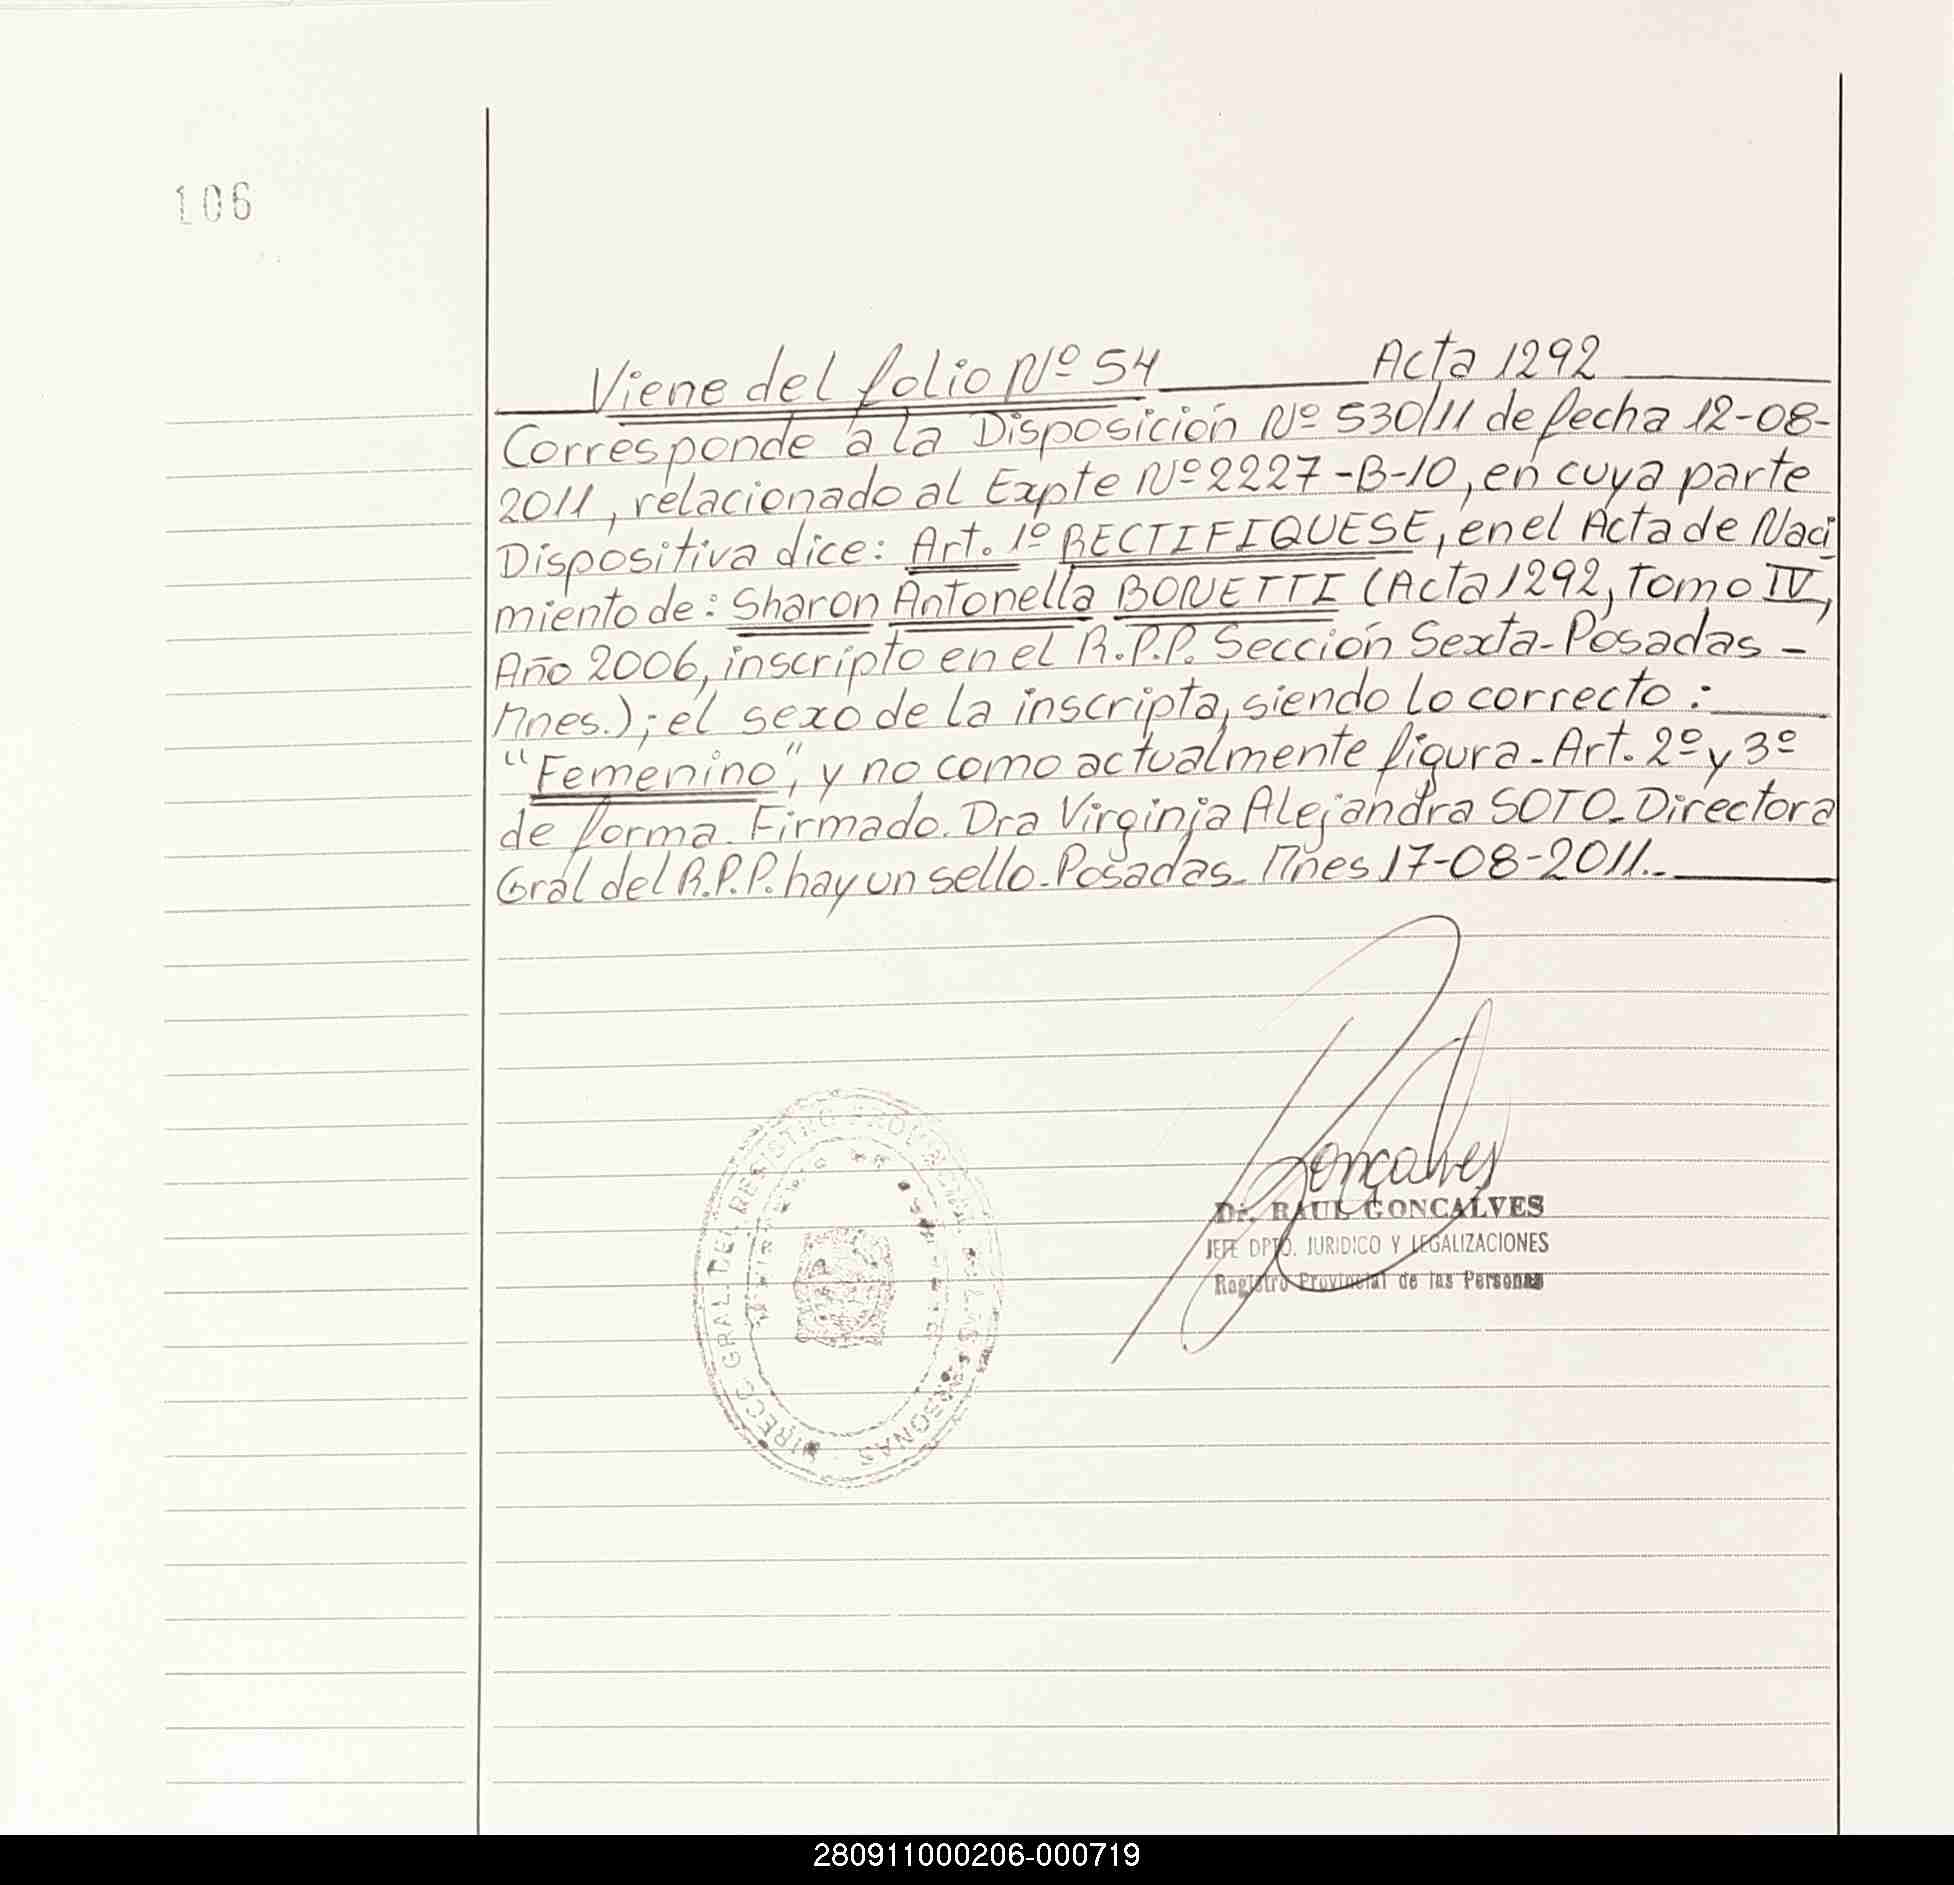 106
Viene del folio Nº 54 Acta 1292
Corresponde a la Disposición Nº 530/11 de fecha 12-08-
2011, relacionado al Expte Nº 2227-B-10, en cuya parte
Dispositiva dice: Art. 1º RECTIFIQUESE, en el Acta de Naci
miento de: Sharon Antonella BONETTI (Acta 1292, Tomo IV,
Año 2006, inscripto en el R.P.P. Sección Sexta-Posadas-
Mnes.); el sexo de la inscripta, siendo lo correcto:
"Femenino", y no como actualmente figura-Art. 2º y 3º
de forma. Firmado. Dra Virginia Alejandra SOTO-Directora
Gral del R.P.P. hay un sello-Posadas-Mnes 17-08-2011.-
DIRECC GRAL. DEL REGISTRO PROVINCIAL DE LAS PERSONAS
Goncalves
Dr. RAUL GONCALVES
JEFE DPTO. JURIDICO Y LEGALIZACIONES
Registro Provincial de las Personas
280911000206-000719